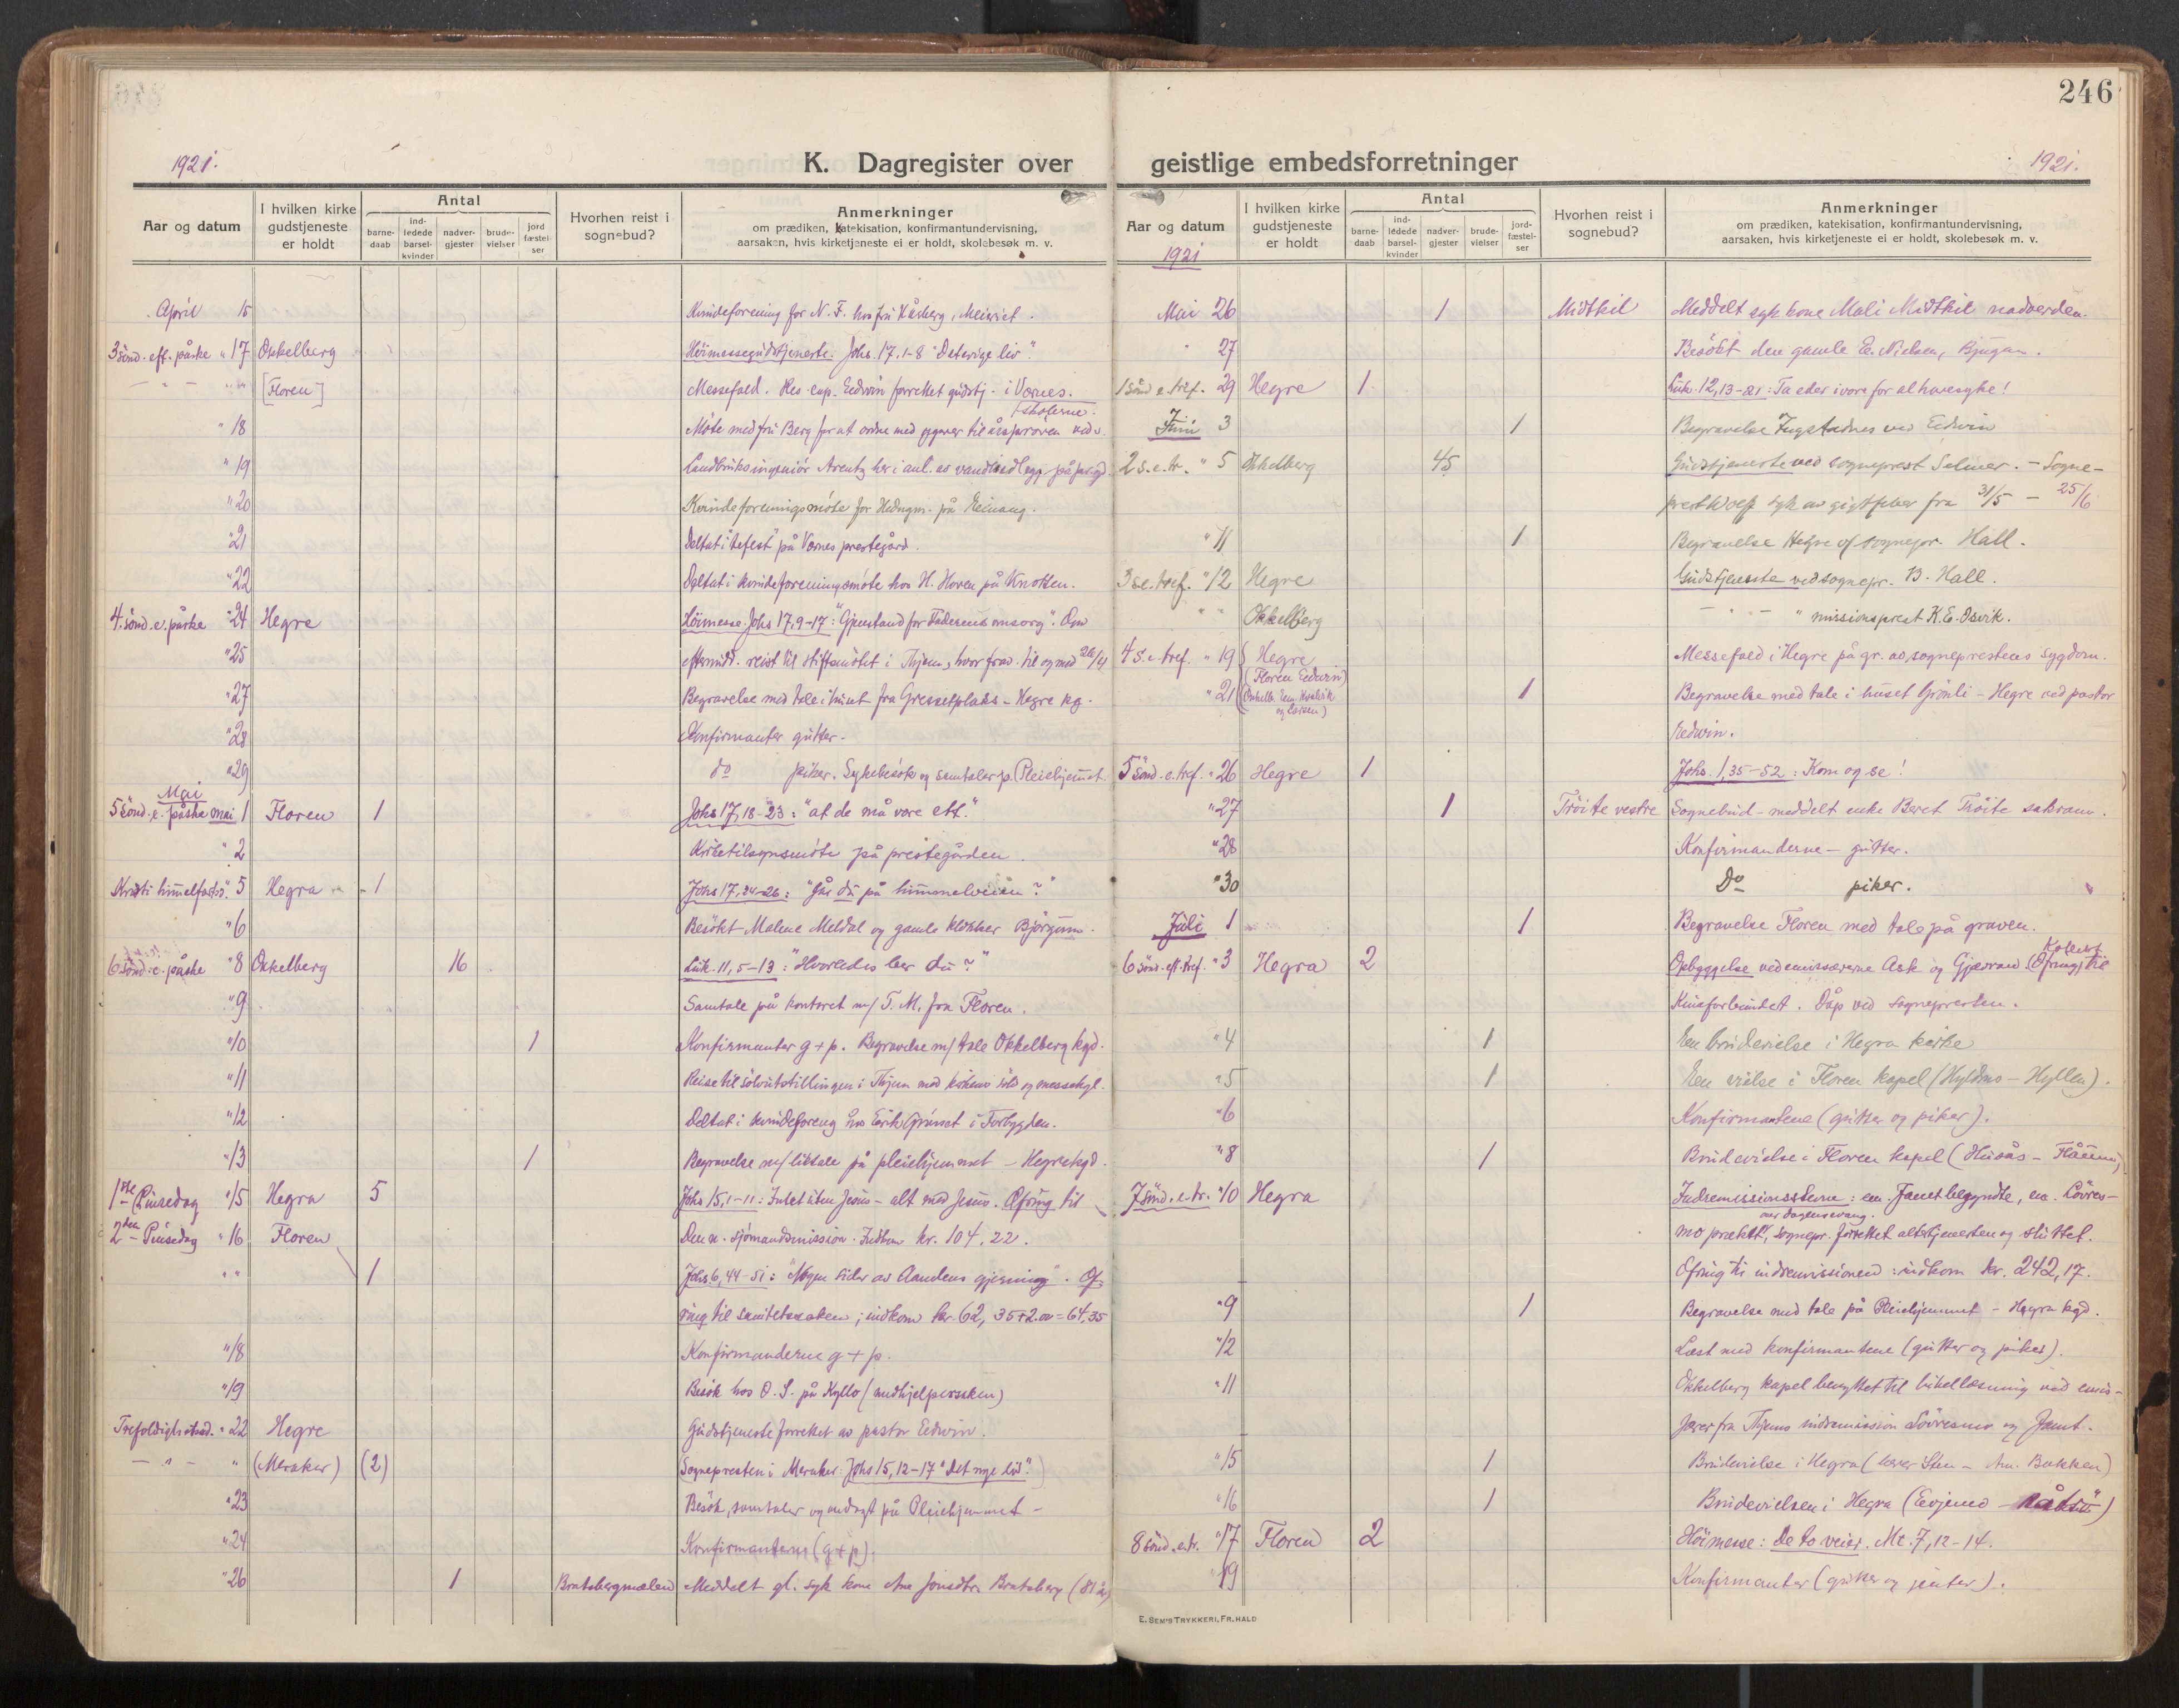 246
1921.
K. Dagregister over geistlige embedsforretninger
1921.
Aar og datum
I hvilken kirke gudstjeneste er holdt
Antal
barne-daab
ind-ledede barsel-kvinder
nadver-gjester
brude-vielser
jord fæstel-ser
Hvorhen reist i sognebud?
Anmerkninger
om prædiken, katekisation, konfirmantundervisning,
aarsaken, hvis kirketjeneste ei er holdt, skolebesøk m. v.
April 15 Kvindeforening for N. F. hos fru Kåsberg, Meieriet.
3 sönd. eft. påske " 17 Okkelberg Höimessegudstjeneste. Johs. 17, 1-8 "Det evige liv".
— " — " " [Floren] Messefald. Res. cap. Eedwin forrettet gudstj. i Værnes.
skolerne.
" 18 Möte med fru Berg for at ordne med opgaver til årsprøven ved
" 19 Landbruksingeniör Arentz her i anl. av vandledl
" 20 Kvindeforeningsmöte for Hedngm. på Reinang.
" 21 Deltat i tefest på Værnes prestegård.
" 22 Deltat i kvindeforeningsmöte hos H. Hoven på Knotten.
4. sönd. e. påske " 24 Hegre Höimesse. Johs 17, 9-17: "Gjenstand for Faderens omsorg". Om
" 25 eftermidd. reist til stiftsmötet i Thjem, hvor frav. til og med 26/4
" 27 Begravelse med tale i huset fra Gressetplads - Hegre kg.
" 28 Konfirmanter gutter.
" 29 do piker. Sykebesök og samtaler p. Pleiehjemmet.
Mai
5 sönd. e. påske mai 1 Floren 1 Johs 17, 18-23: "at de må være ett."
" 2 Kirketilsynsmöte på prestegården.
Kristi himmelfartsd. " 5 Hegra 1 Johs 17, 24-26: "Går du på himmelveien?"
" 6 Besökt Malene Meldal og gamle klokker Bjørgum.
6 sönd. e. påske " 8 Okkelberg 16 Luk. 11, 5-13: "Hvorledes ber du?"
" 9 Samtale på kontoret m/ T. M. fra Floren.
" 10 1 Konfirmanter g + p. Begravelse m/ tale Okkelberg kgd.
" 11 Reise til sölvutstillingen i Thjem med kirkens sölv og messehgl.
" 12 Deltat i kvindeforeng hos Eirik Grönset i Forbygden.
" 13 1 Begravelse m/ liktale på pleiehjemmet - Hegre kgd.
1ste Pinsedag " 15 Hegra 5 Johs 15, 1-11: Intet uten Jesus - alt med Jesus. Ofring til
2den Pinsedag " 16 Floren Den n. sjömandsmission. Indkom kr. 104,22.
" " 1 Johs 6, 44-51: "Nogen sider av Aandens gjerning". Of-
ring til samitetssaken; indkom kr. 62,35 + 2.00 = 64,35
" 18 Konfirmanderne g + p.
" 19 Besök hos O. S. på Kyllo (medhjelpersken)
Trefoldighetssd. " 22 Hegre Gudstjeneste forrettet av pastor Eedwin.
— " — " (Meraker) (2) Sognepresten i Meraker. Johs 15, 12-17 "Det nye bud".
" 23 Besök, samtaler og andagt på Pleiehjemmet -
" 24 Konfirmantene (g + p).
" 26 1 Bratsbergmælen Meddelt gl. syk kone Ane Jonsdtr. Bratsberg (81 år)
Aar og datum
1921
I hvilken kirke gudstjeneste er holdt
Antal
barne-daab
ind-ledede barsel-kvinder
nadver-gjester
brude-vielser
jord-fæstel-ser
Hvorhen reist i sognebud?
Anmerkninger
om prædiken, katekisation, konfirmantundervisning,
aarsaken, hvis kirketjeneste ei er holdt, skolebesøk m. v.
Mai 26 1 Midtkil Meddelt syk kone Mali Midtkil nadverden.
" 27 Besökt den gamle E. Nielsen, Bjugan.
1 sönd e. tref. 29 Hegre 1 Luk. 12, 13-21: Ta eder ivare for al havesyke!
Juni 3 1 Begravelse Ingstadnes ved Eedwin
2 s. e. tr. " 5 Okkelberg 45 Gudstjeneste ved sogneprest Selmer. - Sogne-
prest Wolff syk av gigtfeber fra 31/5 - 25/6
" 11 1 Begravelse Hegre v/ sognepr. Hall.
3 s. e. tref. " 12 Hegre Gudstjeneste ved sognepr. B. Hall.
" " Okkelberg — " — " missionsprest K. E. Osvik.
4 s. e. tref. " 19 Hegre Messefald i Hegre på gr. av sogneprestens sygdom.
(Floren Eedwin)
" 21 (Okkelb. Em. Kvalvik 1 Begravelse med tale i huset Grönli - Hegre ved pastor
og Larsen)
Eedwin.
5 sönd. e. tref. " 26 Hegre 1 Johs. 1, 35-52: Kom og se!
" 27 1 Tröite vestre Sognebud - meddelt enke Beret Tröite sakram.
" 28 Konfirmanderne - gutter.
" 30 Do piker.
Juli 1 1 Begravelse Floren med tale på graven.
Kollekt
6 sönd. eft. tref. " 3 Hegra 2 Opbyggelse ved emissærerne Ask og Gjævran (Ofring) til
Kinaforbundet. Dåp ved sognepresten.
" 4 1 En brudevielse i Hegra kirke
" 5 1 En vielse i Floren kapel (Hyldmo - Hyllen).
" 6 Konfirmantene (gutter og piker).
" 8 1 Brudevielse i Floren kapel (Husås -
7 sönd. e. tr. " 10 Hegra Indremissionsstevne: em. Jamt begyndte, em. Lövres-
over dagens evang.
mo prækte, sognepr. forrettet altertjenesten og sluttet.
Ofring til indremissionen: indkom kr. 242,17.
" 9 1 Begravelse med tale på Pleiehjemmet - Hegra kgd.
" 12 Læst med konfirmantene (gutter og piker).
" 11 Okkelberg kapel benyttet til bibellæsning ved emis-
særer fra Thjems indremission Lövresmo og Jamt.
" 15 1 Brudevielse i Hegra (lærer Sten - An. Bakken)
" 16 1 Brudevielsen i Hegra (Evjemo -
8 sönd. e. tr. " 17 Floren 2 Höimesse: De to veier. Mt. 7, 12-14.
" 19 Konfirmanter (gutter og jenter).
E. SEM'S TRYKKERI, FR.HALD